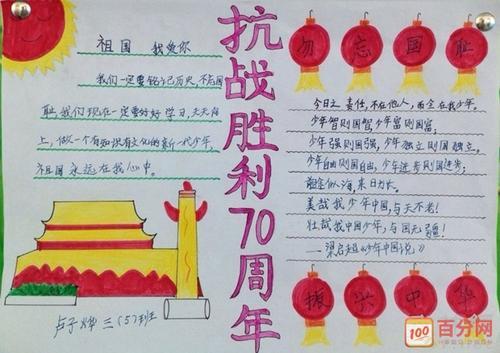 抗战胜利70周年
祖国 我爱你
我们一定要铭记历史,不忘国
耻,我们现在一定要好好学习,天天向
上,做一个有知识有文化的新一代少年,
祖国永远在我心中。
卢子烨 三(5)班
勿忘国耻
今日之责任,不在他人,而全在我少年。
少年智则国智,少年富则国富;
少年强则国强,少年独立则国独立。
少年自由则国自由,少年进步则国进步;
前途似海,来日方长。
美哉我少年中国,与天不老!
壮哉我中国少年,与国无疆!
—梁启超《少年中国说》
振兴中华
100
百分网